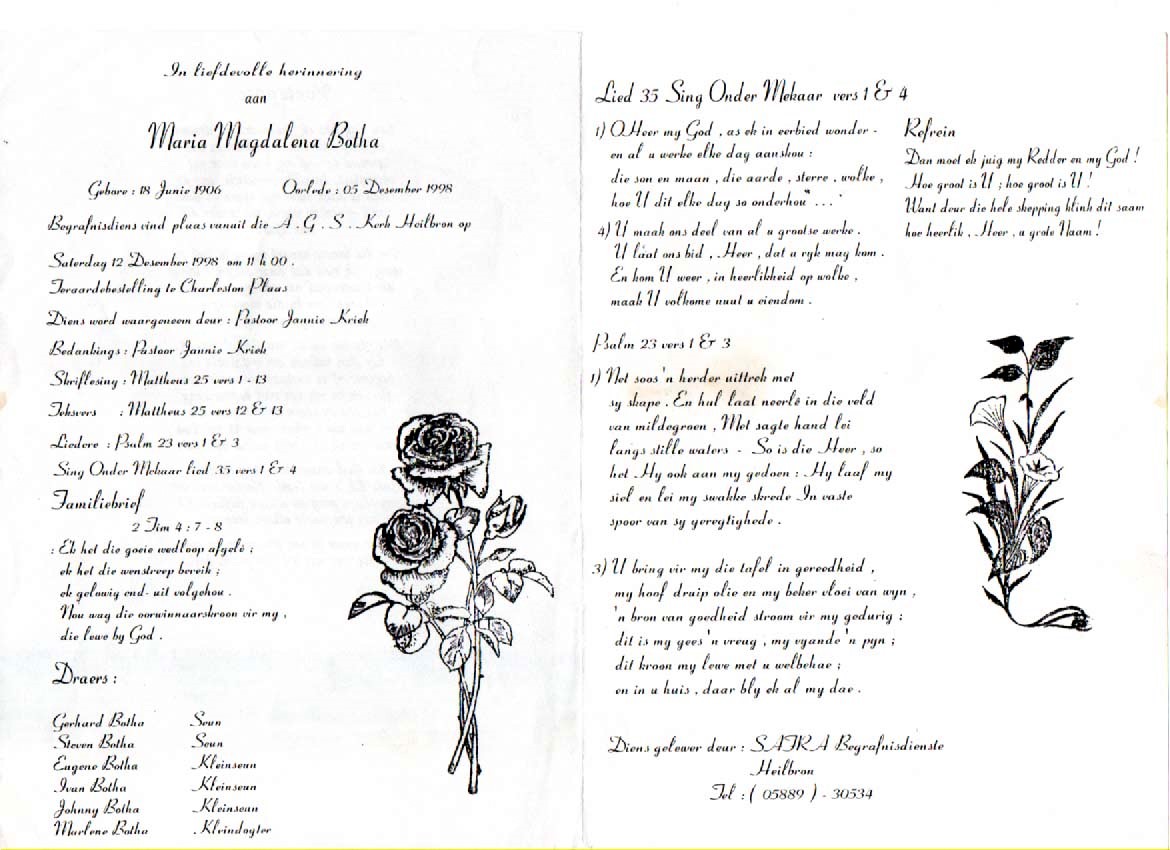 In liefdevolle herinnering
aan
Maria Magdalena Botha
Gebore : 18 Junie 1906 Oorlede : 05 Desember 1998
Begrafnisdiens vind plaas vanuit die A . G . S . Kerk Heilbron op
Saterdag 12 Desember 1998 om 11 h 00 .
Teraardebestelling te Charleston Plaas
Diens word waargeneem deur : Pastoor Jannie Kriek
Bedankings : Pastoor Jannie Kriek
Skriflesing : Mattheus 25 vers 1 - 13
Teksvers : Mattheus 25 vers 12 & 13
Liedere : Psalm 23 vers 1 & 3
Sing Onder Mekaar lied 35 vers 1 & 4
Familiebrief
2 Tim 4 : 7 - 8
: Ek het die goeie wedloop afgelê ;
ek het die wenstreep bereik ;
ek gelowig end- uit volgehou .
Nou wag die oorwinnaarskroon vir my ,
die lewe by God .
Draers :
Gerhard Botha Seun
Steven Botha Seun
Eugene Botha Kleinseun
Ivan Botha Kleinseun
Johnny Botha Kleinseun
Marlene Botha . Kleindogter
Lied 35 Sing Onder Mekaar vers 1 & 4
1) O Heer my God , as ek in eerbied wonder -
en al u werke elke dag aanskou :
die son en maan , die aarde , sterre , wolke ,
hoe U dit elke dag so onderhou ...
4) U maak ons deel van al u grootse werke .
U laat ons bid , Heer , dat u ryk mag kom .
En kom U weer , in heerlikheid op wolke ,
maak U volkome nuut u eiendom .
Refrein
Dan moet ek juig my Redder en my God !
Hoe groot is U ; hoe groot is U !
Want deur die hele skepping klink dit saam
hoe heerlik , Heer , u grote Naam !
Psalm 23 vers 1 & 3
1) Net soos 'n herder uittrek met
sy skape . En hul laat neerlê in die veld
van mildegroen , Met sagte hand lei
langs stille waters - So is die Heer , so
het Hy ook aan my gedoen : Hy laaf my
siel en lei my swakke skrede In vaste
spoor van sy geregtighede .
3) U bring vir my die tafel in gereedheid ,
my hoof druip olie en my beker vloei van wyn ,
'n bron van goedheid stroom vir my gedurig :
dit is my gees 'n vreug , my vyande 'n pyn ;
dit kroon my lewe met u welbehae ;
en in u huis , daar bly ek al my dae .
Diens gelewer deur : SAFRA Begrafnisdienste
Heilbron
Tel : ( 05889 ) - 30534